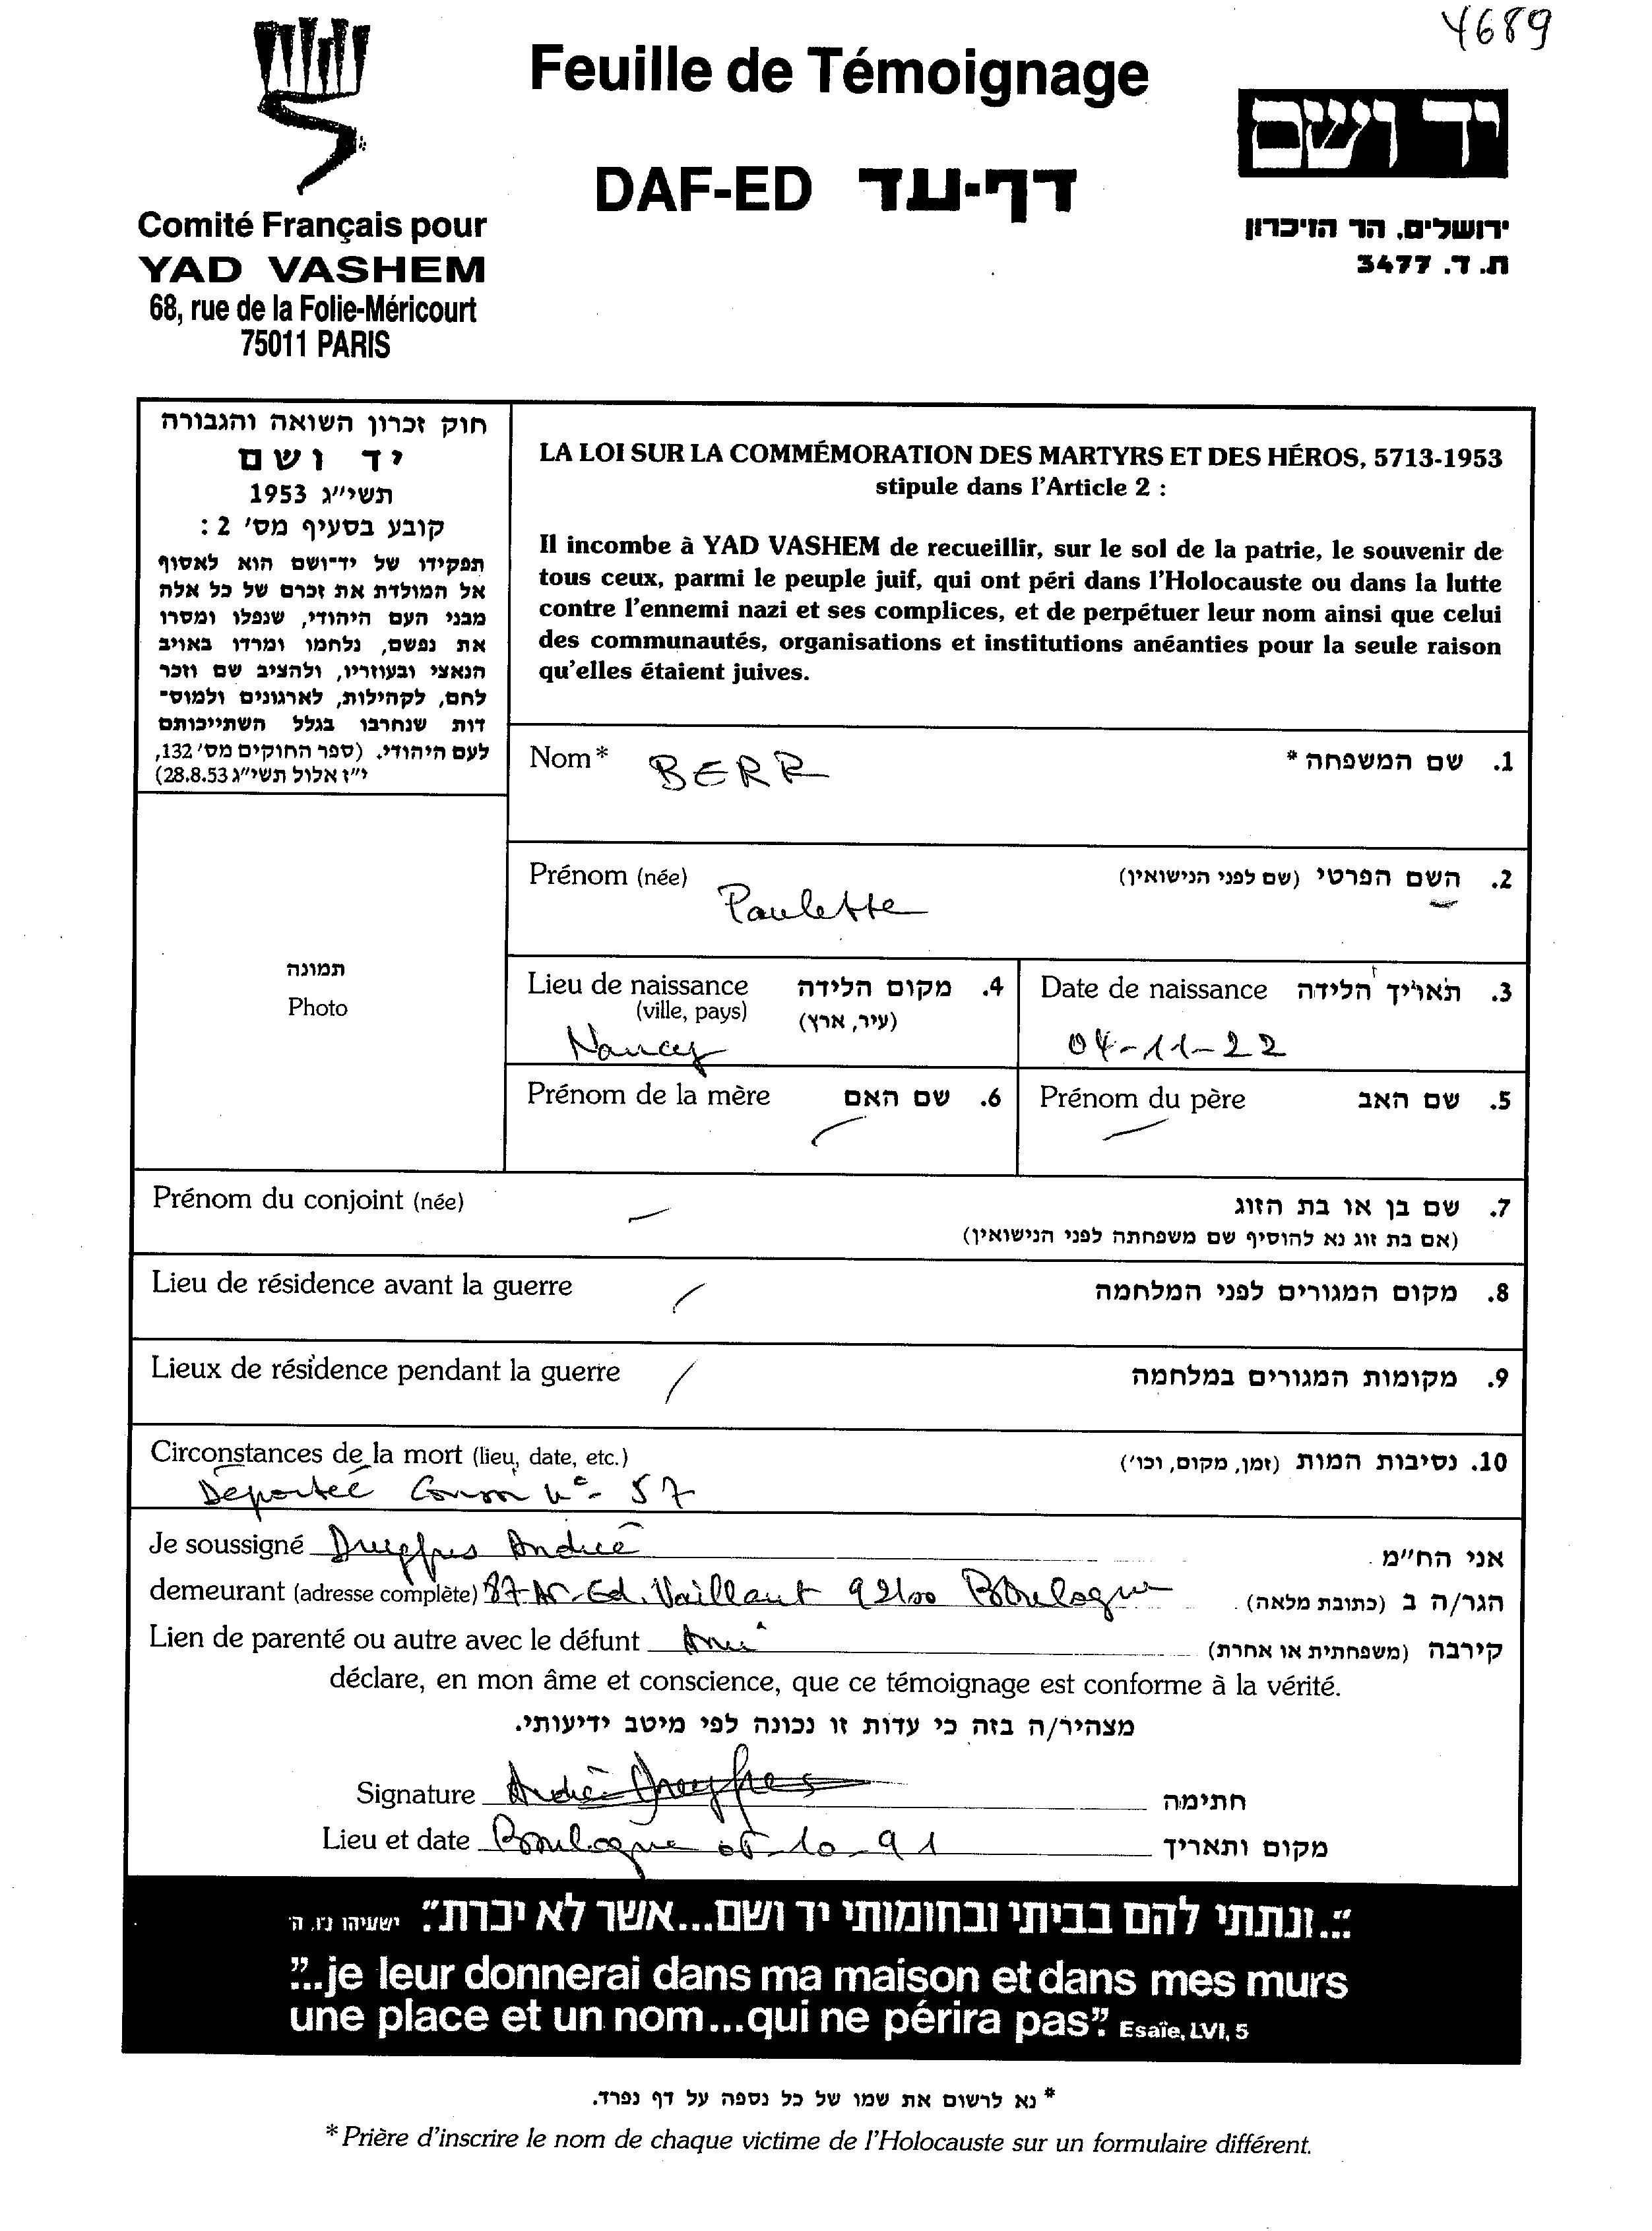 4689
Feuille de Témoignage
DAF-ED דף-עד
Comité Français pour
YAD VASHEM
68, rue de la Folie-Méricourt
75011 PARIS
יד ושם
ירושלים, הר הזיכרון
ת. ד. 3477
חוק זכרון השואה והגבורה
יד ושם
תשי״ג 1953
קובע בסעיף מס׳ 2 :
תפקידו של יד־ושם הוא לאסוף
אל המולדת את זכרם של כל אלה
מבני העם היהודי, שנפלו ומסרו
את נפשם, נלחמו ומרדו באויב
הנאצי ובעוזריו, ולהציב שם וזכר
להם, לקהילות, לארגונים ולמוס־
דות שנחרבו בגלל השתייכותם
לעם היהודי. (ספר החוקים מס׳ 132,
י״ז אלול תשי״ג 28.8.53)
LA LOI SUR LA COMMÉMORATION DES MARTYRS ET DES HÉROS, 5713-1953
stipule dans l'Article 2 :
Il incombe à YAD VASHEM de recueillir, sur le sol de la patrie, le souvenir de
tous ceux, parmi le peuple juif, qui ont péri dans l'Holocauste ou dans la lutte
contre l'ennemi nazi et ses complices, et de perpétuer leur nom ainsi que celui
des communautés, organisations et institutions anéanties pour la seule raison
qu'elles étaient juives.
Nom* BERR 1. שם המשפחה *
Prénom (née) Paulette 2. השם הפרטי (שם לפני הנישואין)
תמונה
Photo
Lieu de naissance 4. מקום הלידה
(ville, pays) (עיר, ארץ)
Nancy
Date de naissance 3. תאריך הלידה
04-11-22
Prénom de la mère 6. שם האם
Prénom du père 5. שם האב
Prénom du conjoint (née) 7. שם בן או בת הזוג
(אם בת זוג נא להוסיף שם משפחתה לפני הנישואין)
Lieu de résidence avant la guerre 8. מקום המגורים לפני המלחמה
Lieux de résidence pendant la guerre 9. מקומות המגורים במלחמה
Circonstances de la mort (lieu, date, etc.) 10. נסיבות המות (זמן, מקום, וכו׳)
Déportée Convoi n° 57
Je soussigné Dreyfus André אני הח״מ
demeurant (adresse complète) 87 Av. Ed. Vaillant 92100 Boulogne הגר/ה ב (כתובת מלאה)
Lien de parenté ou autre avec le défunt Ami קירבה (משפחתית או אחרת)
déclare, en mon âme et conscience, que ce témoignage est conforme à la vérité.
מצהיר/ה בזה כי עדות זו נכונה לפי מיטב ידיעותי.
Signature André Dreyfus חתימה
Lieu et date Boulogne 05-10-91 מקום ותאריך
״...ונתתי להם בביתי ובחומותי יד ושם...אשר לא יכרת״. ישעיהו נ״ו, ה׳
"...je leur donnerai dans ma maison et dans mes murs
une place et un nom...qui ne périra pas". Esaïe, LVI, 5
* נא לרשום את שמו של כל נספה על דף נפרד.
* Prière d'inscrire le nom de chaque victime de l'Holocauste sur un formulaire différent.